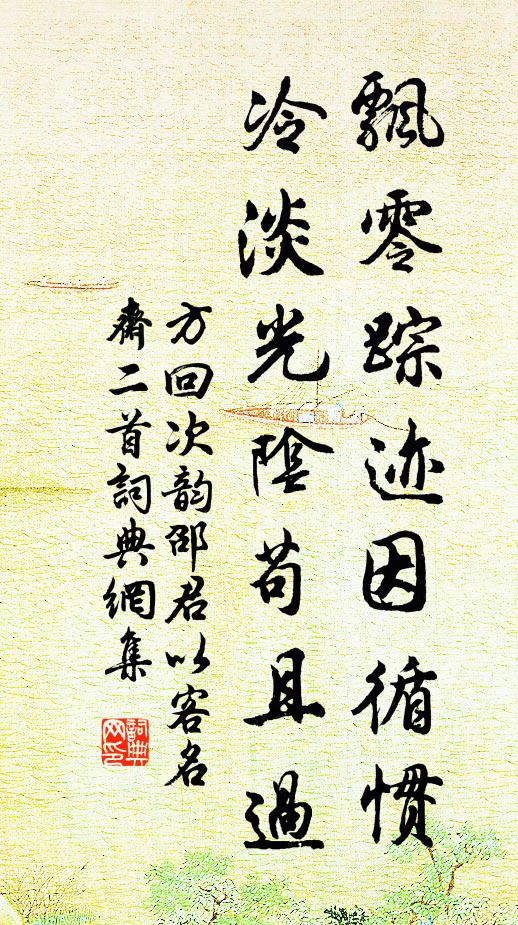 飄零踪迹因循惯
冷淡光陰苟且過
方回次韵邵君以客名
齋二首詞典網集
詞典网印